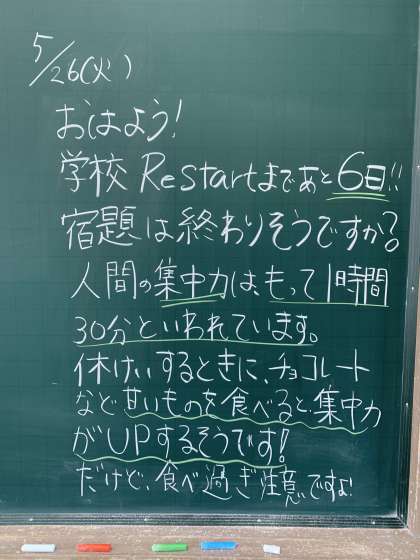 5/26(火)
おはよう!
学校Restartまであと6日!!
宿題は終わりそうですか?
人間の集中力は、もって1時間
30分といわれています。
休けいするときに、チョコレート
など甘いものを食べると、集中力
がUPするそうです!
だけど、食べ過ぎ注意ですよ!